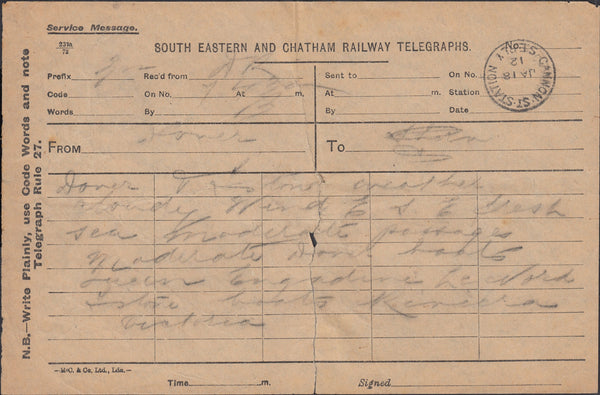 Service Message.
231A
72
SOUTH EASTERN AND CHATHAM RAILWAY TELEGRAPHS.
CANNON·ST·STATION
JA 18
12
Prefix Rec'd from Sent to On No.
Code On No. At m. At m. Station
Words By By Date
FROM Dover To
N.B.—Write Plainly, use Code Words and note
Telegraph Rule 27.
Dover weather
cloudy Wind E S E fresh
sea moderate passages
moderate Dover boats
Queen Engadine Le Nord
boats Riviera
Victoria
—McC. & Co. Ltd., Ldn.—
Time m. Signed